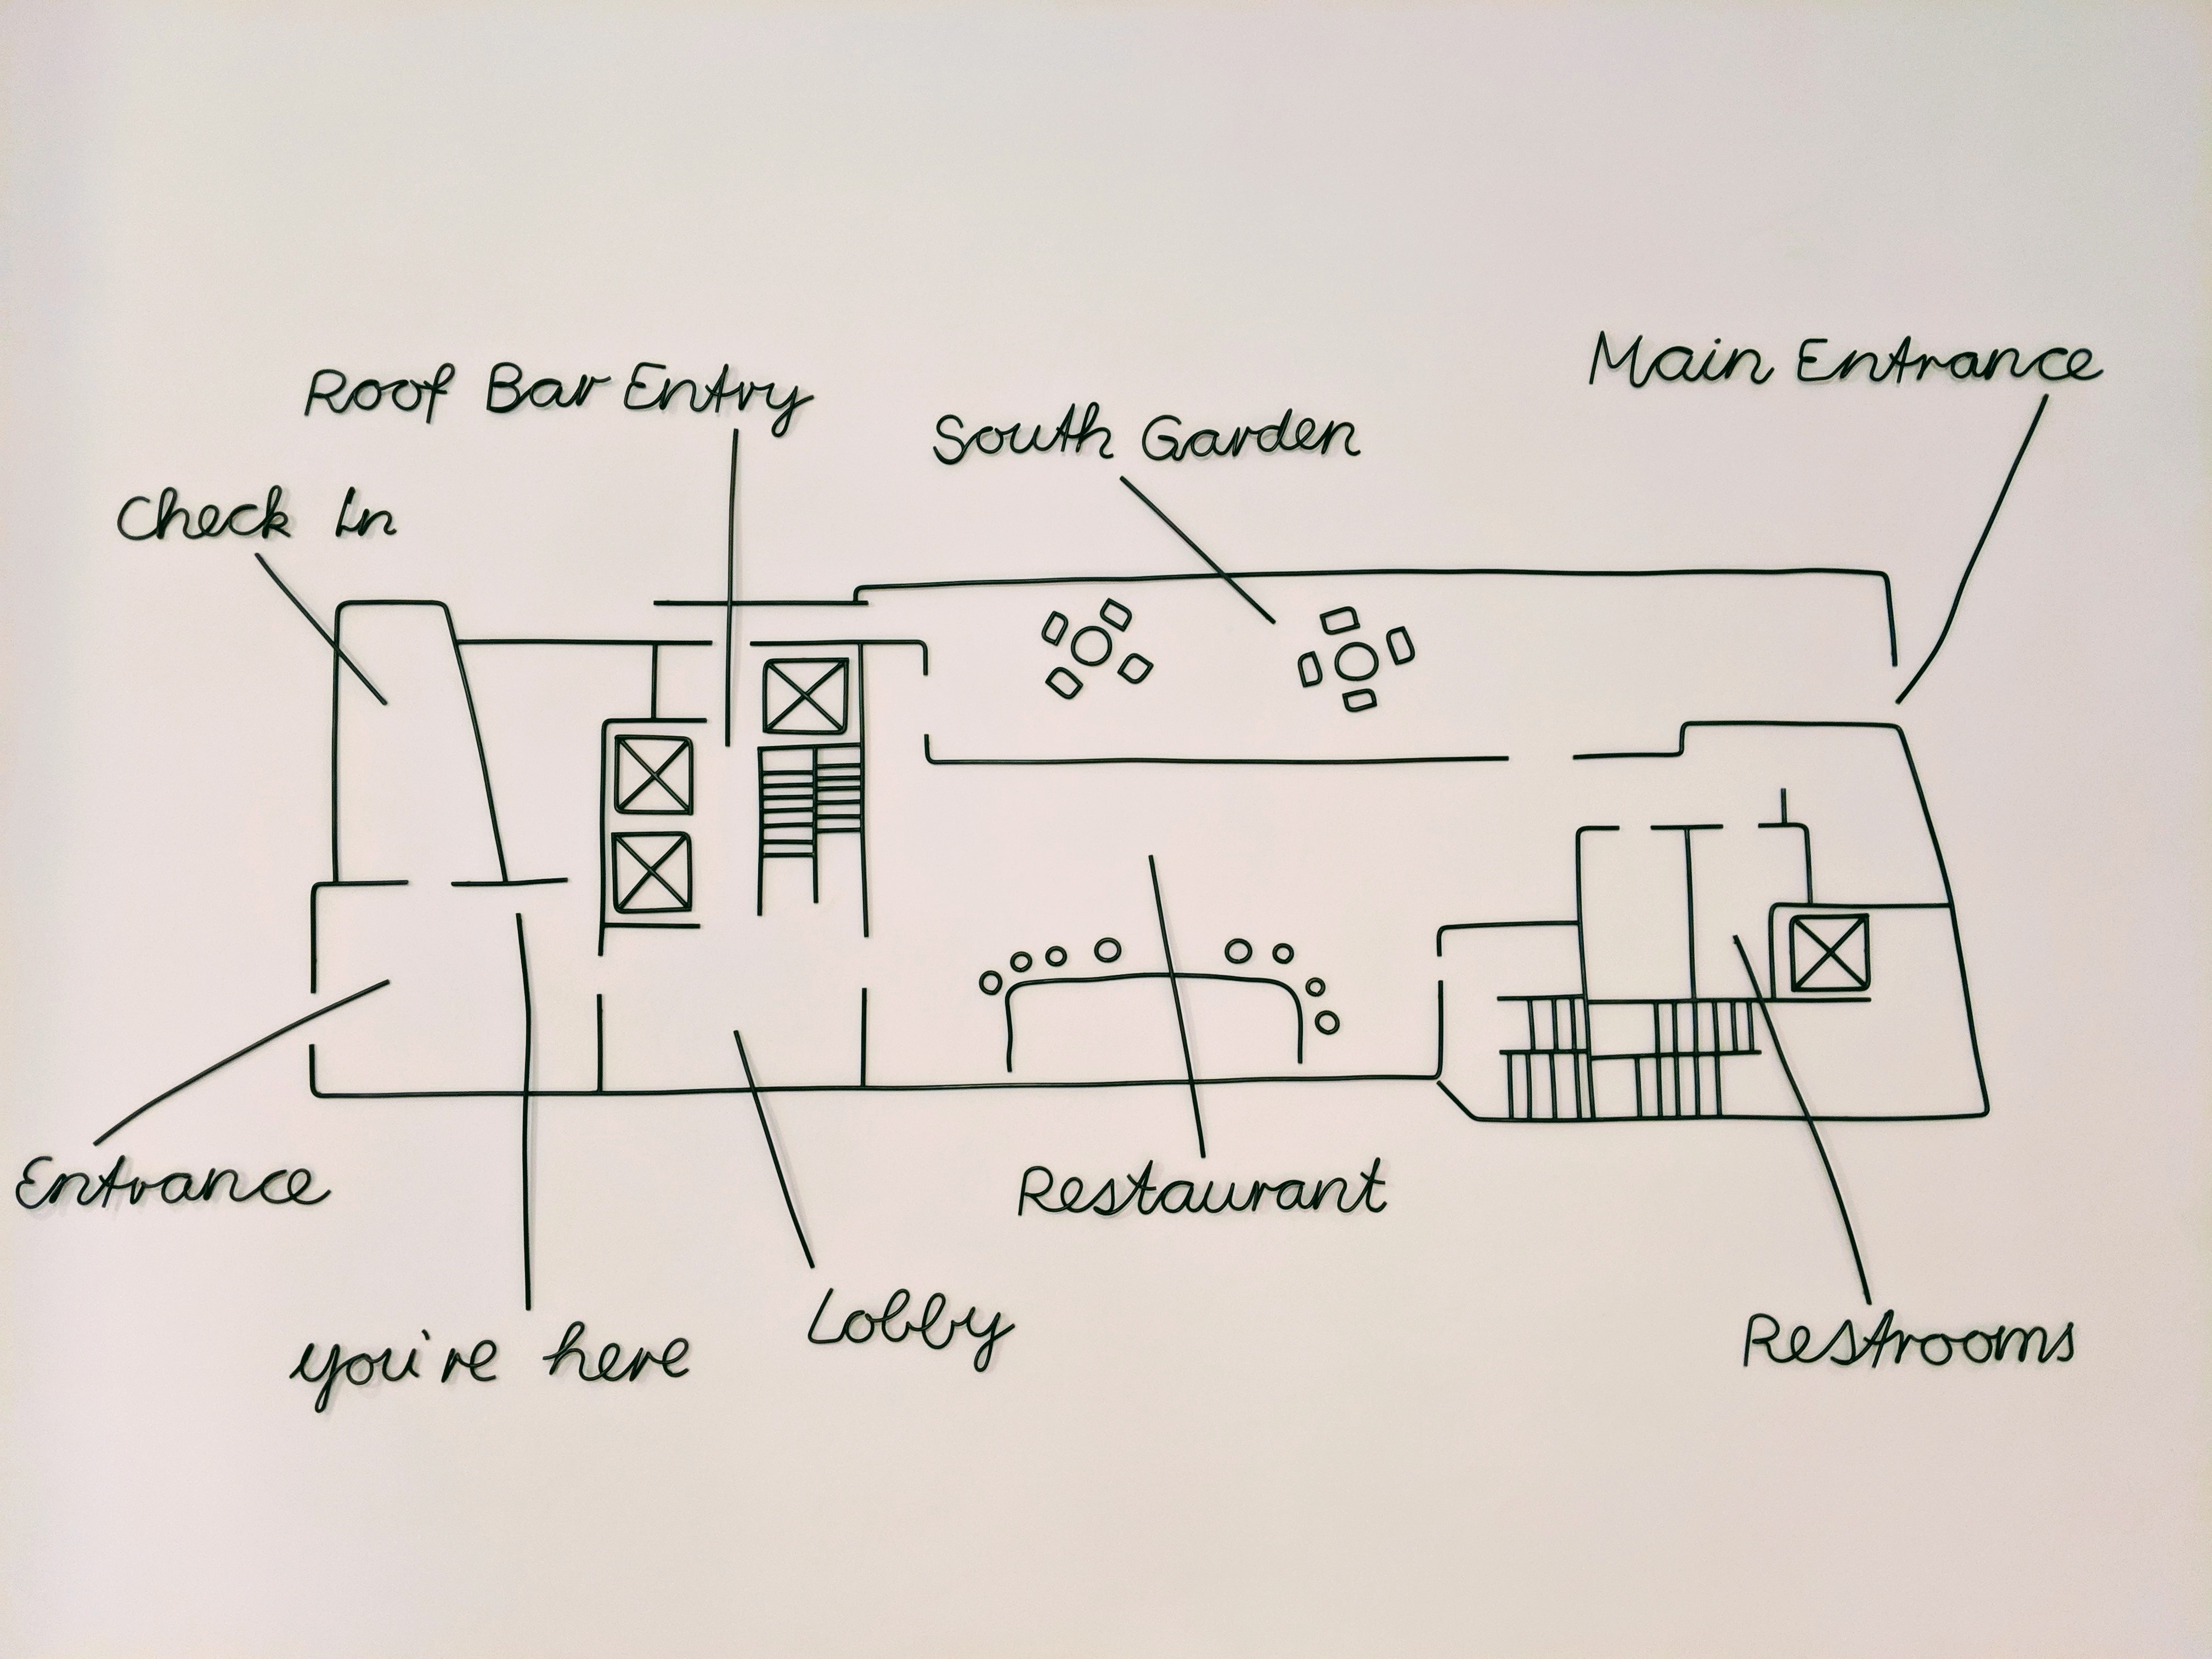 Main Entrance
Roof Bar Entry
South Garden
Check In
Entrance
Restaurant
Lobby
you're here
Restrooms